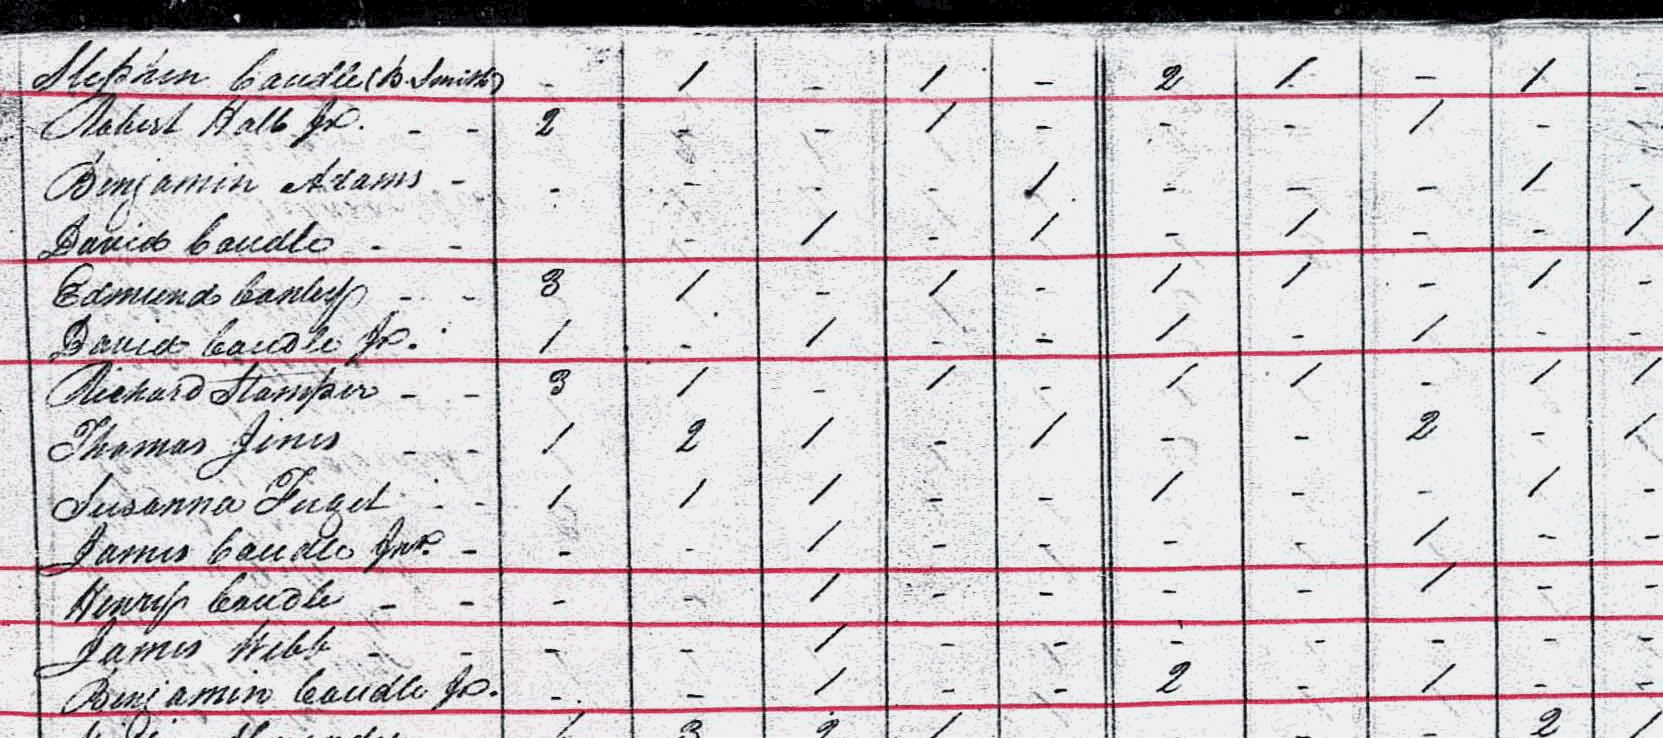 Stephen Caudle (B. Smith) - 1 - 1 - 2 1 - 1 -
Robert Hall Jr. - - 2 - - 1 - - - 1 -
Benjamin Adams - - - - - 1 - - - 1 -
David Caudle - - - 1 - 1 - 1 - - 1
Edmund Conley - - 3 1 - 1 - 1 1 - 1 -
David Caudle Jr. 1 - 1 - - 1 - 1 - -
Richard Stamper - - 3 1 - 1 - 1 1 - 1 1
Thomas Jines - - 1 2 1 - 1 - - 2 - 1
Susanna Fuget - - 1 1 1 - - 1 - - 1 -
James Caudle Jnr. - - - 1 - - - - 1 - -
Henry Caudle - - - - 1 - - - - 1 - -
James Webb - - - - 1 - - - - - - -
Benjamin Caudle Jr. - - 1 - - 2 - 1 - -
3 2 1 - - - 2 1